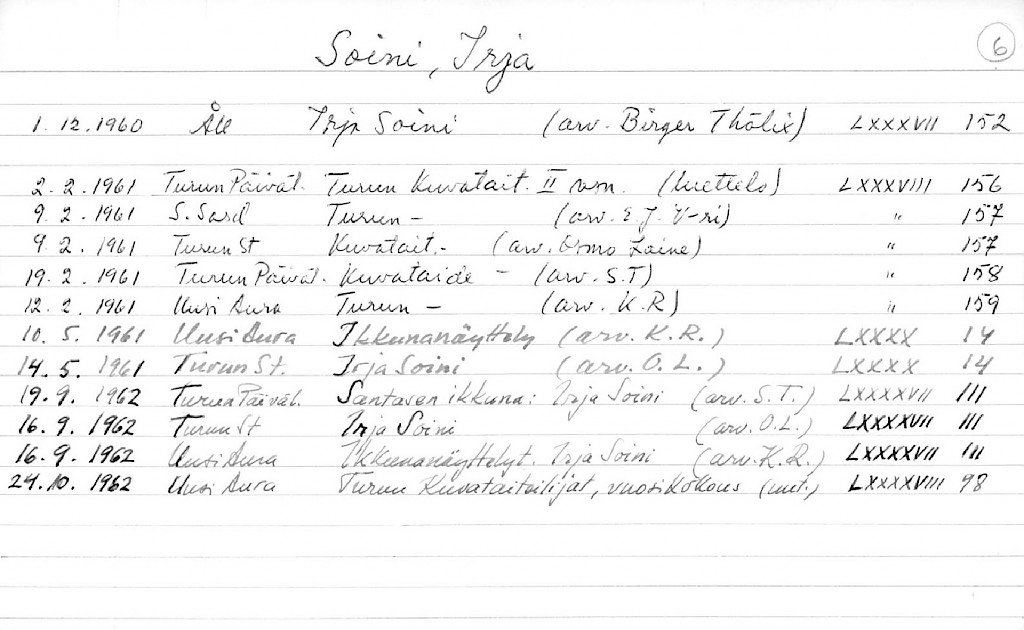 6
Soini, Irja
1.12.1960 ÅU Irja Soini (arv. Birger Thölix) LXXXVII 152
2.2.1961 Turun Päiväl. Turun Kuvatait. II osn. (luettelo) LXXXVIII 156
9.2.1961 S. Sosd Turun – (arv. E.J. V-ri) " 157
9.2.1961 Turun St Kuvatait.- (arv. Osmo Laine) " 157
19.2.1961 Turun Päiväl. Kuvataide – (arv. S.T) " 158
12.2.1961 Uusi Aura Turun – (arv. K.R) " 159
10.5.1961 Uusi Aura Ikkunanäyttely (arv. K.R.) LXXXX 14
14.5.1961 Turun St. Irja Soini (arv. O.L.) LXXXX 14
19.9.1962 Turun Päiväl. Santasen ikkuna: Irja Soini (arv. S.T.) LXXXXVII 111
16.9.1962 Turun St Irja Soini (arv. O.L.) LXXXXVII 111
16.9.1962 Uusi Aura Ikkunanäyttelyt. Irja Soini (arv. K.R.) LXXXXVII 111
24.10.1962 Uusi Aura Turun Kuvataiteilijat, vuosikokous (uut.) LXXXXVIII 98